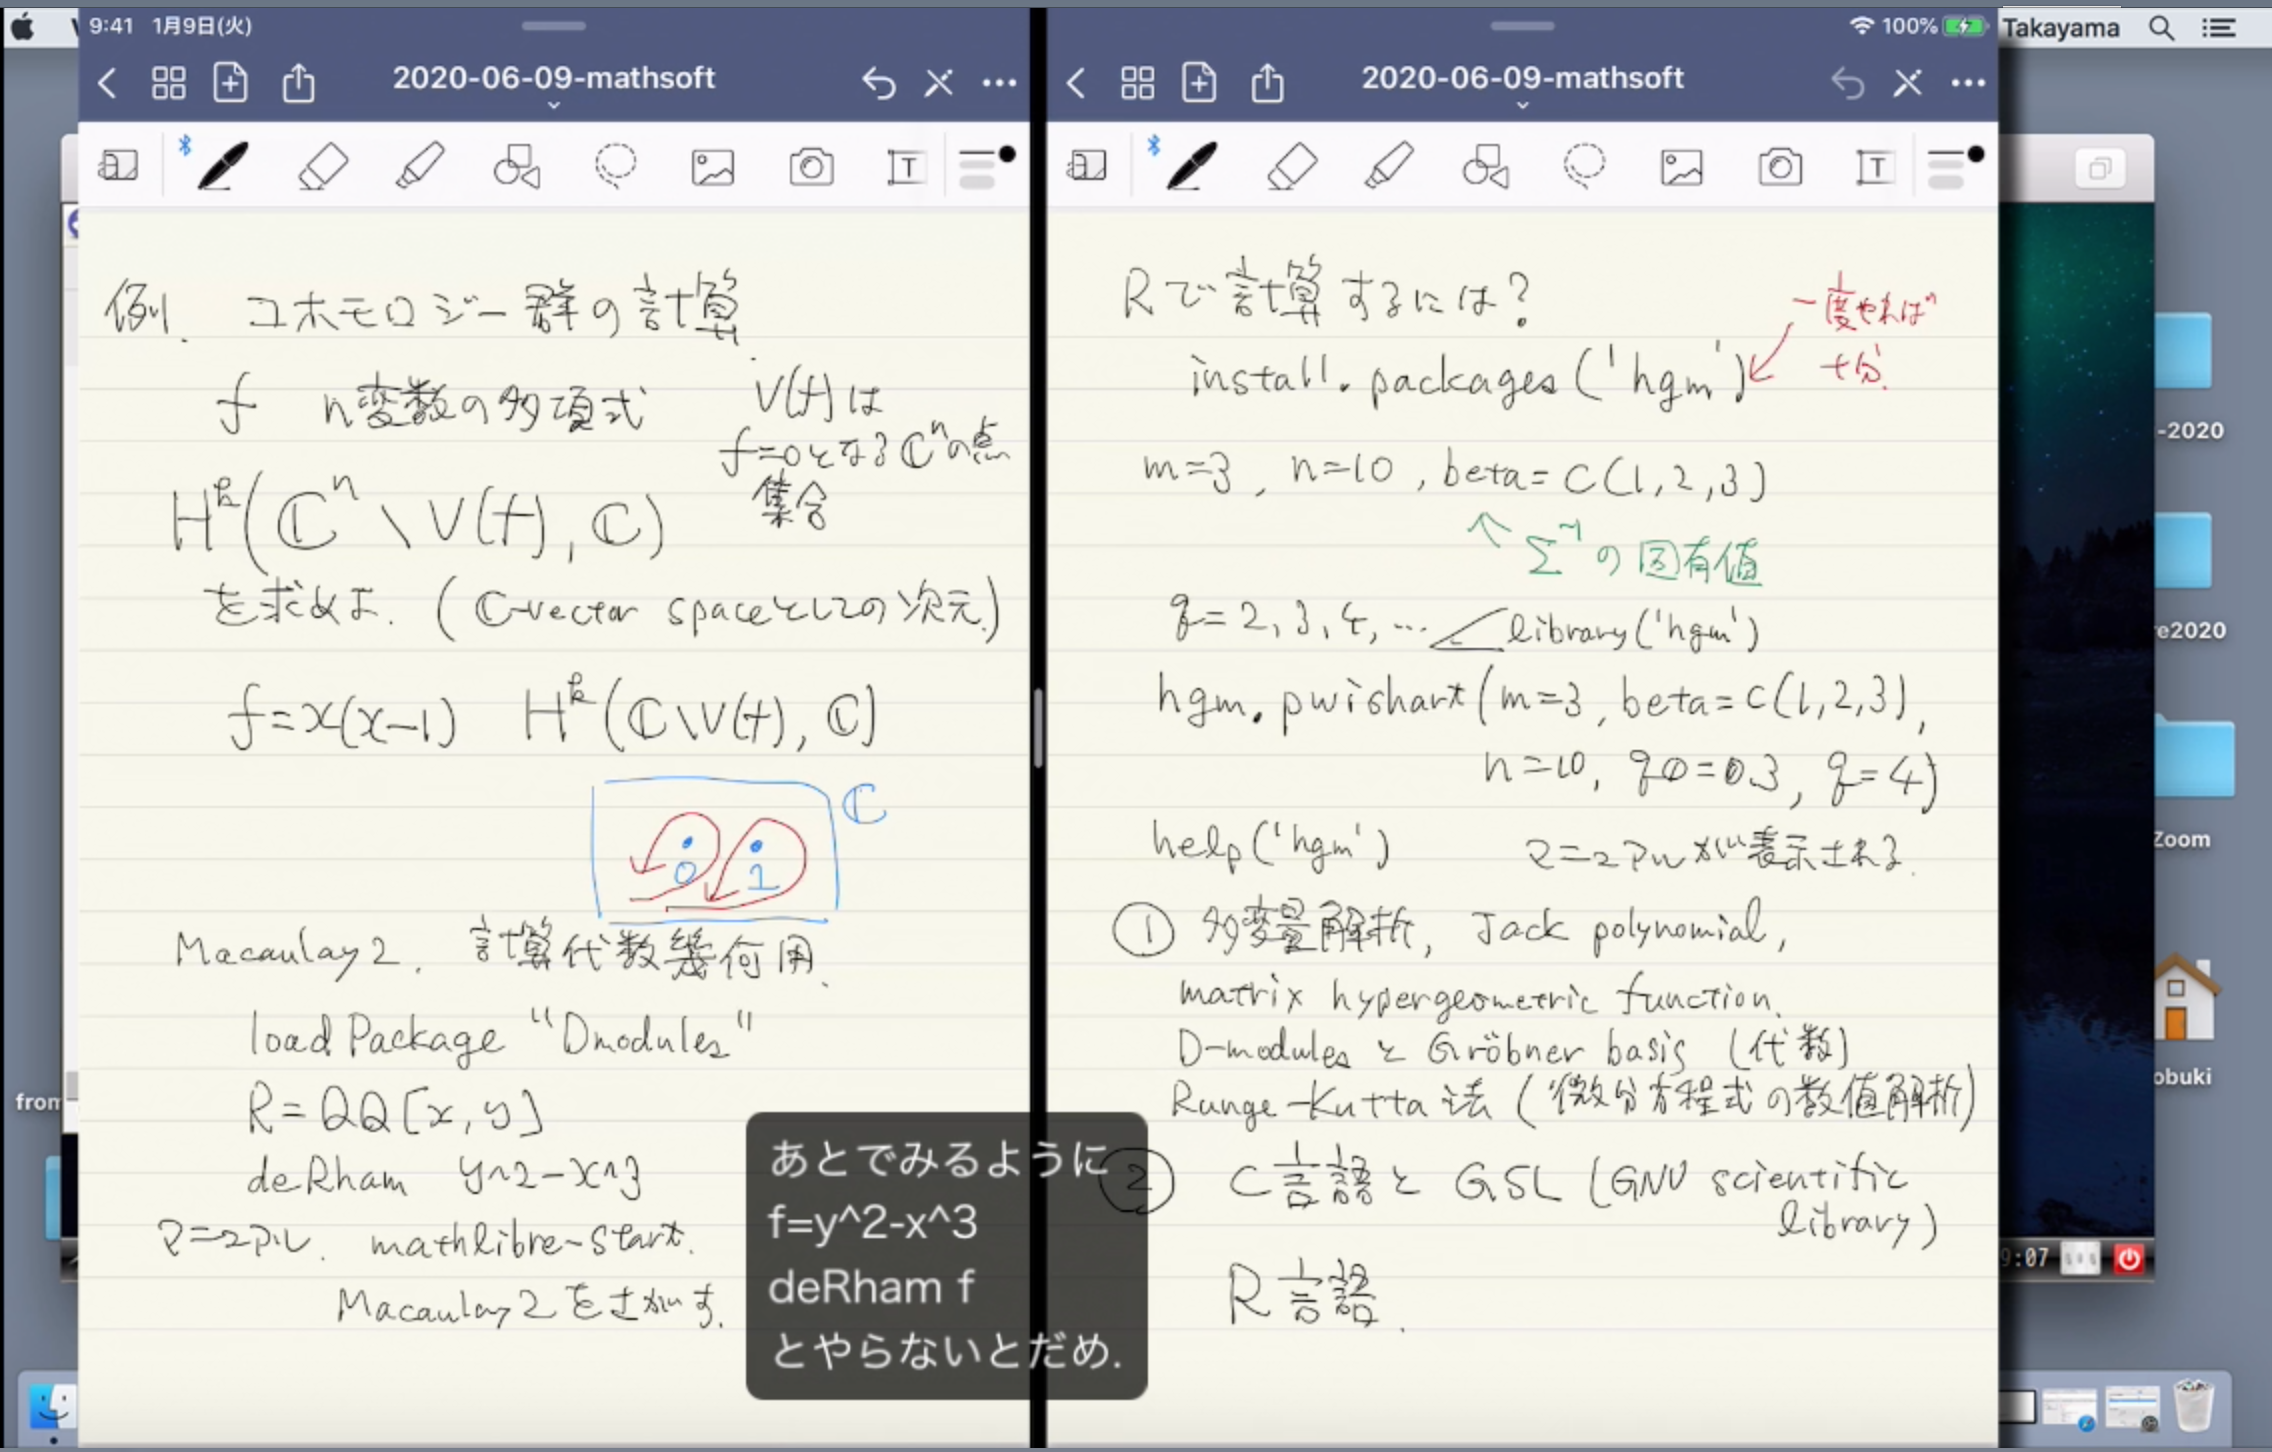 9:41 1月9日(火)
100%
Takayama
2020-06-09-mathsoft
例. コホモロジー群の計算.
f n変数の多項式
V(f)は
f=0となるℂⁿの点
集合
Hᵏ(ℂⁿ \ V(f), ℂ)
を求めよ. (ℂ-vector spaceとしての次元.)
f=x(x-1) Hᵏ(ℂ\V(f), ℂ)
ℂ
0 1
Macaulay2. 計算代数幾何用.
load Package "Dmodules"
R=QQ[x,y]
deRham y^2-x^3
マニュアル. mathlibre-start.
Macaulay2をさがす.
あとでみるように
f=y^2-x^3
deRham f
とやらないとだめ.
2020-06-09-mathsoft
Rで計算するには?
一度やれば
十分.
install.packages('hgm')
m=3, n=10, beta=c(1,2,3)
Σ⁻¹の固有値
q=2,3,4,… library('hgm')
hgm.pwishart(m=3, beta=c(1,2,3),
n=10, q0=0.3, q=4)
help('hgm') マニュアルが表示される.
① 多変量解析, Jack polynomial,
matrix hypergeometric function.
D-modulesとGröbner basis (代数)
Runge-Kutta法 (微分方程式の数値解析)
② C言語とGSL (GNU scientific
library)
R言語.
-2020
e2020
Zoom
obuki
from
9:07